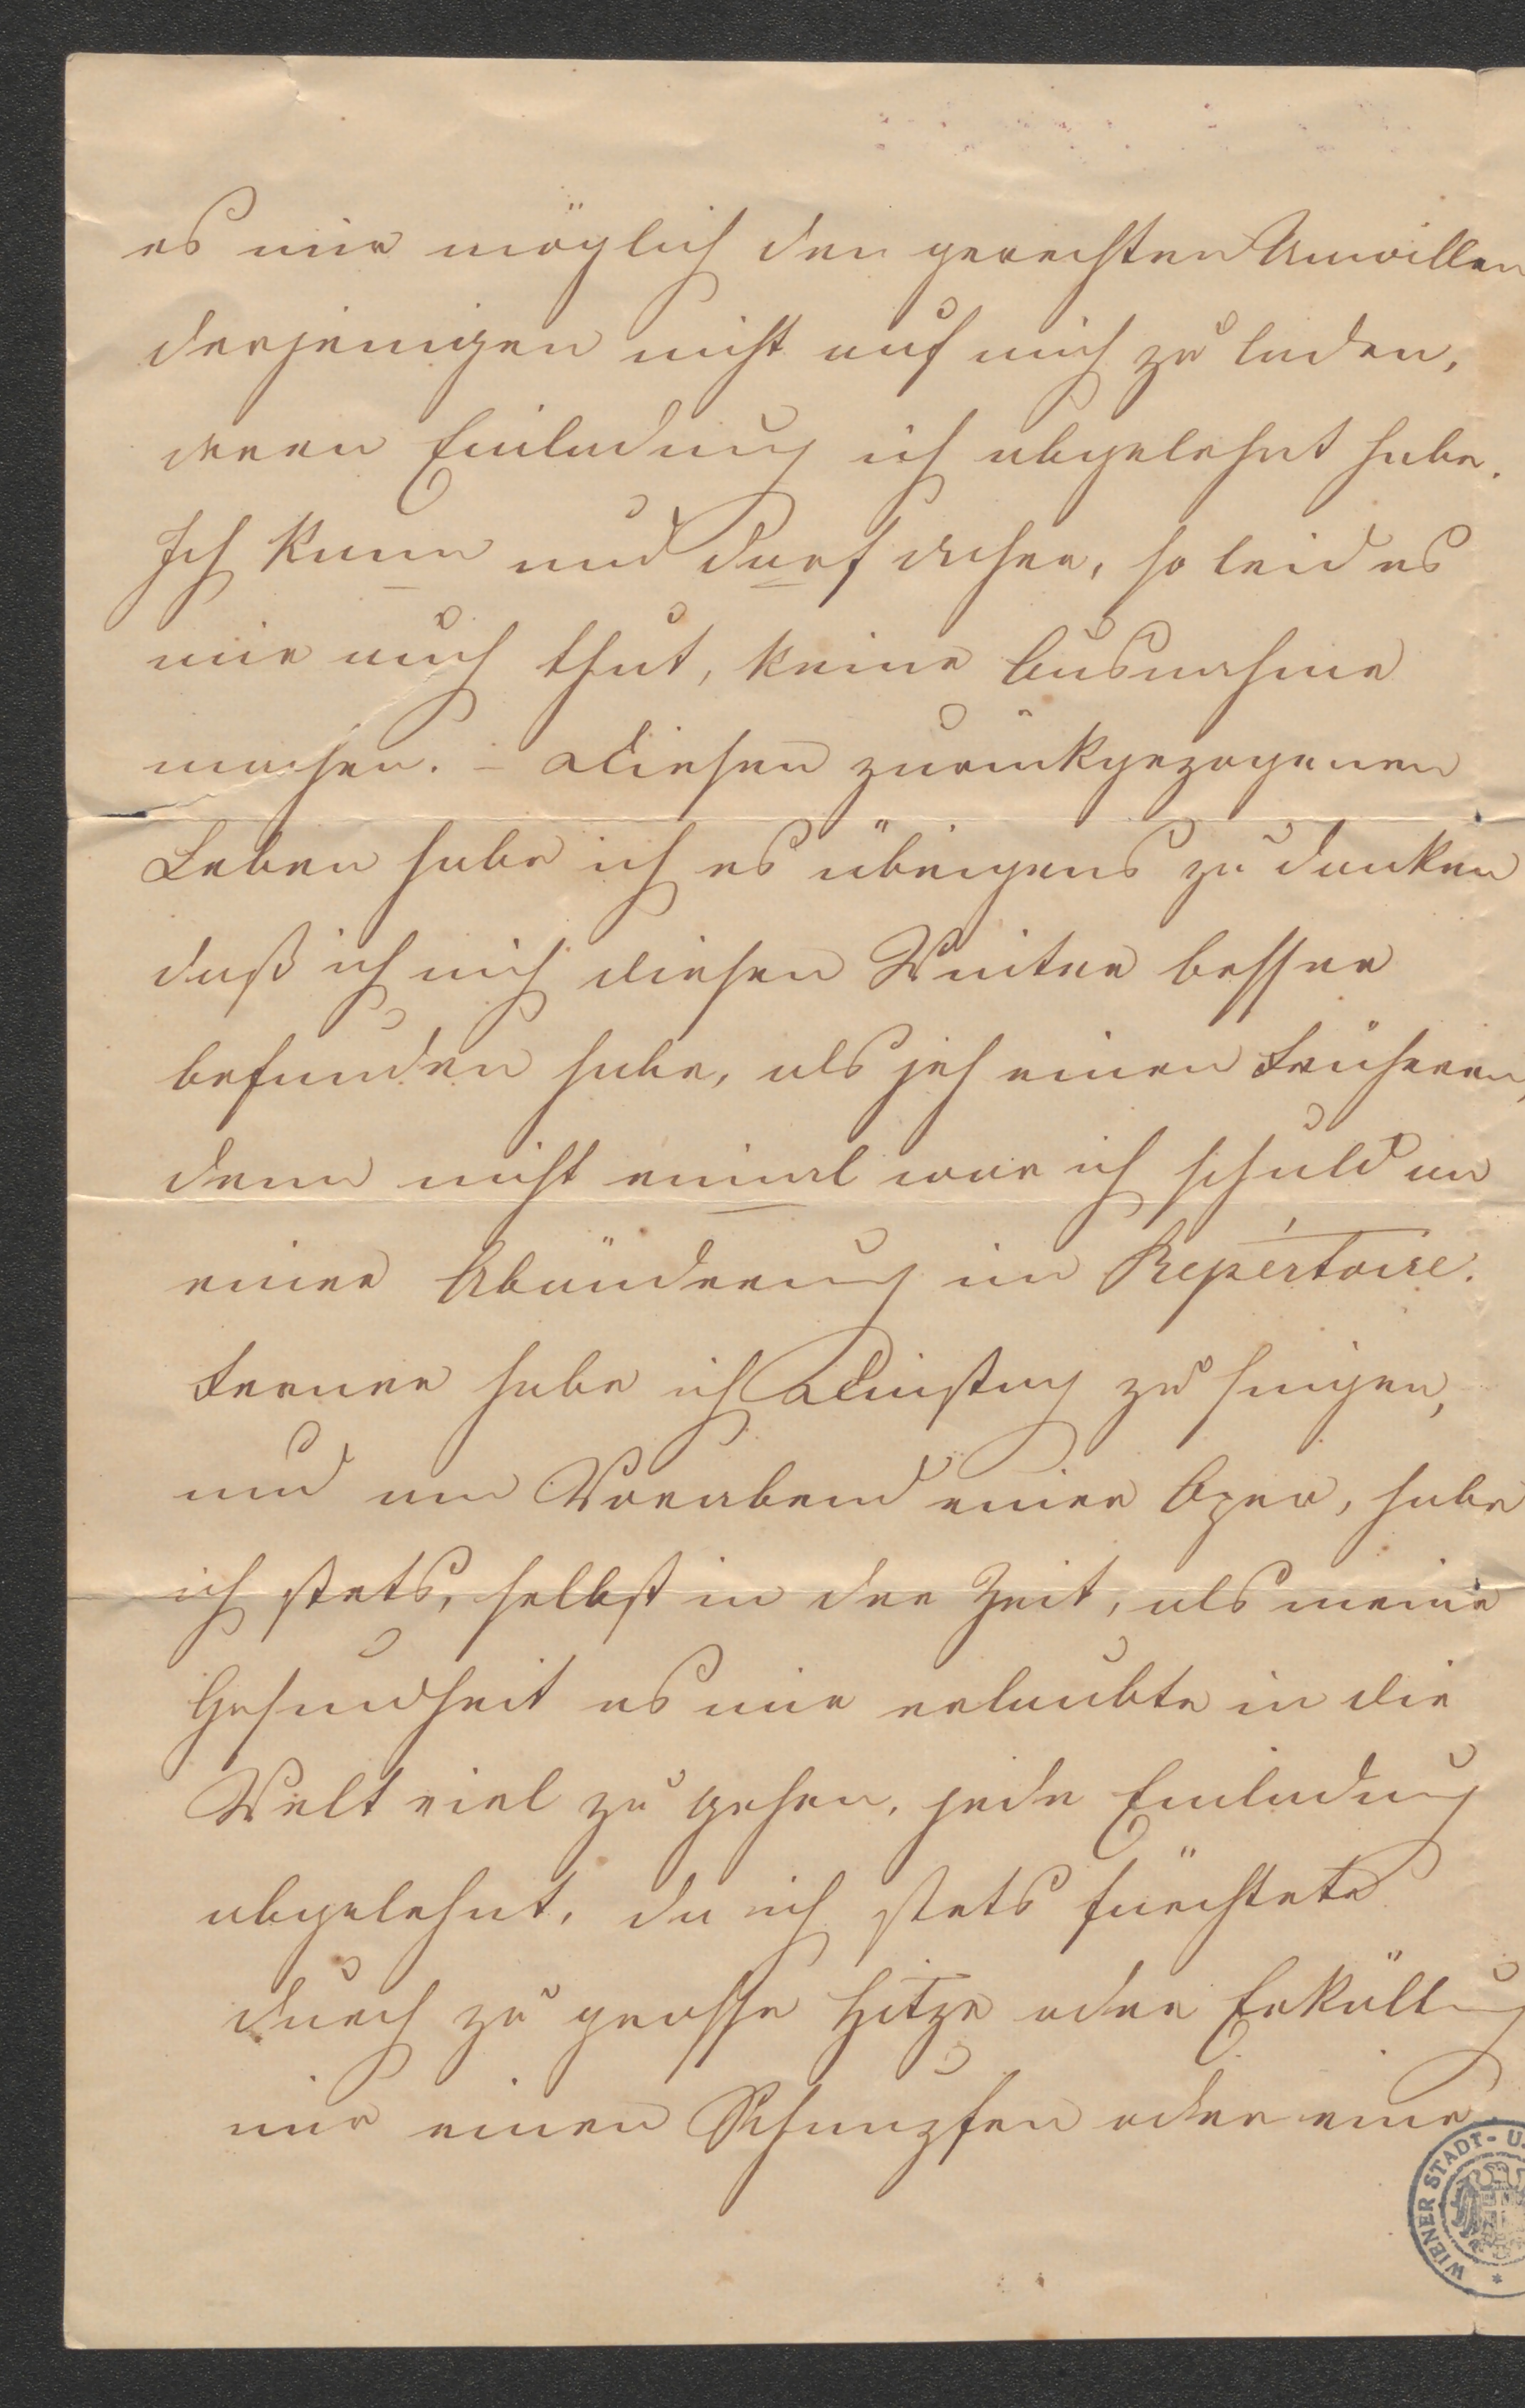 es mir möglich den gerechten Unwillen
derjenigen nicht auf mich zu laden,
deren Einladung ich abgelehnt habe.
Ich kann und darf daher, so leid es
mir auch thut, keine Ausnahme
machen. - Diesen zurückgezogenen
Leben habe ich es übrigens zu danken
daß ich mich diesen Winter besser
befunden habe, als jeh einen früheren,
denn nicht einmal war ich schuld an
einer Abänderung im Repertoire.
Ferner habe ich Dinstag zu singen,
und am Vorabend einer Oper, habe
ich stets, selbst in der Zeit, als meine
Gesundheit es mir erlaubte in die
Welt viel zu gehen, jede Einladung
abgelehnt, da ich stets fürchtete
durch zu grosse Hitze oder Erkältung
mir einen Schnupfen oder eine
WIENER STADT- U.